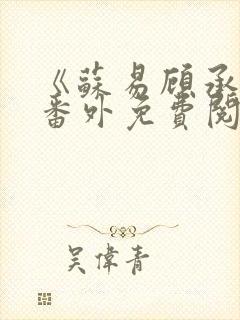 《蘇易顧承
番外免費閱
吳偉青